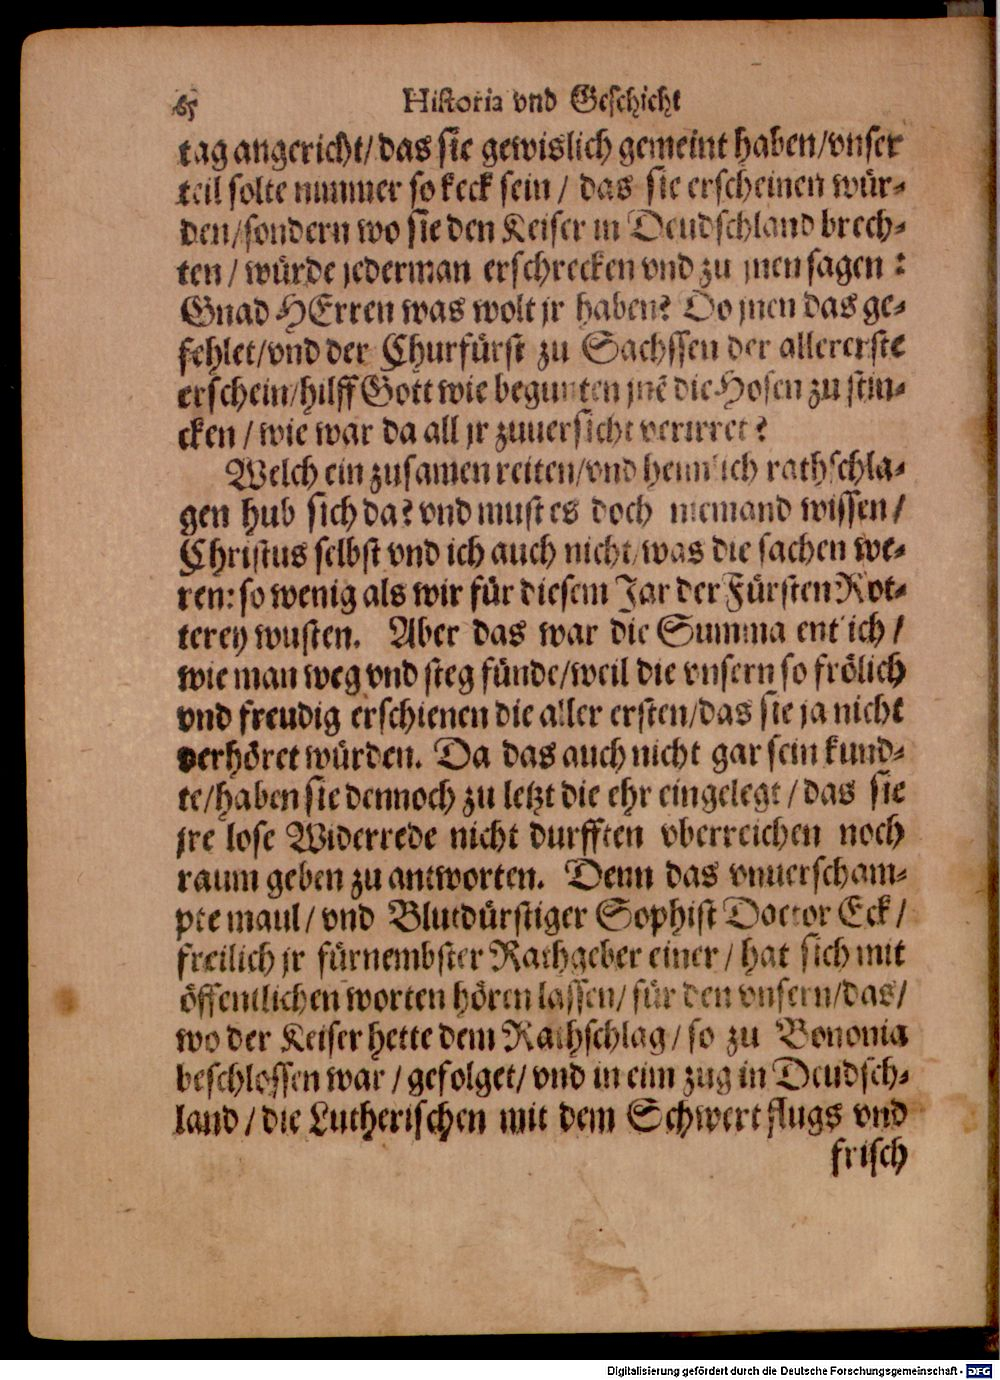 65 Historia vnd Geschicht
tag angericht/ das sie gewislich gemeint haben/vnser
teil solte nimmer so keck sein / das sie erscheinen wür⸗
den/sondern wo sie den Keiser in Deudschland brech⸗
ten / würde jederman erschrecken vnd zu jnen sagen :
Gnad HErren was wolt jr haben? Do jnen das ge⸗
fehlet/vnd der Churfürst zu Sachssen der allererste
erschein/hilff Gott wie begunten jnē die Hosen zu stin⸗
cken / wie war da all jr zuuersicht verirret ?
Welch ein zusamen reiten/vnd heimlich rathschla⸗
gen hub sich da? vnd must es doch niemand wissen /
Christus selbst vnd ich auch nicht/was die sachen we⸗
ren: so wenig als wir für diesem Jar der Fürsten Rot⸗
terey wusten. Aber das war die Summa entlich /
wie man weg vnd steg fünde/weil die vnsern so frölich
vnd freudig erschienen die aller ersten/das sie ja nicht
verhöret würden. Da das auch nicht gar sein kund⸗
te/haben sie dennoch zu letzt die ehr eingelegt / das sie
jre lose Widerrede nicht durfften vberreichen noch
raum geben zu antworten. Denn das vnuerscham⸗
pte maul / vnd Blutdürstiger Sophist Doctor Eck /
freilich jr fürnembster Rathgeber einer / hat sich mit
öffentlichen worten hören lassen/ für den vnsern/das/
wo der Keiser hette dem Rathschlag / so zu Bononia
beschlossen war / gefolget/ vnd in eim zug in Deudsch⸗
land / die Lutherischen mit dem Schwert flugs vnd
frisch
Digitalisierung gefördert durch die Deutsche Forschungsgemeinschaft - DFG